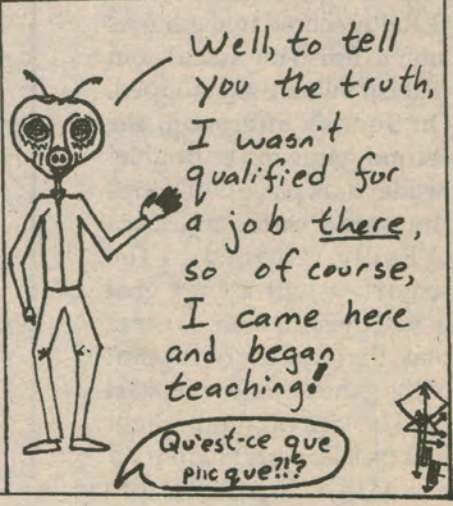 Well, to tell
you the truth,
I wasn't
qualified for
a job there,
so of course,
I came here
and began
teaching!
Qu'est-ce que
pnc que?!?